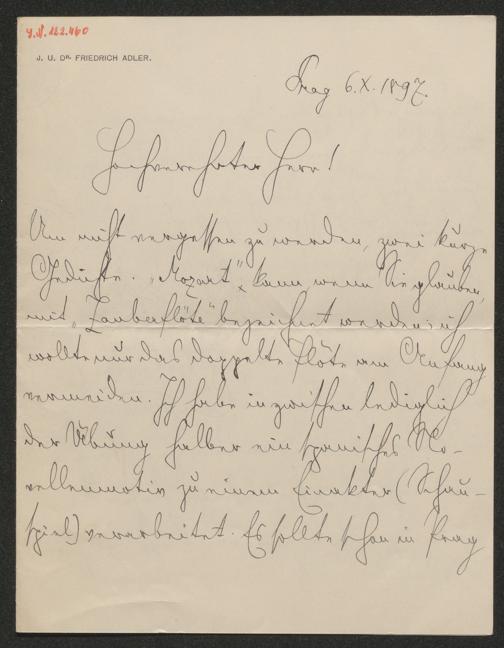 J.N. 122.460
J. U. DR. FRIEDRICH ADLER.
Prag 6.X.1897.
Hochverehrter Herr!
Um nicht vergessen zu werden, zwei kurze
Gedichte. „Mozart“ kann, wenn Sie glauben,
mit „Zauberflöte“ bezeichnet werden; ich
wollte nur das doppelte Flöte am Anfang
vermeiden. Ich habe inzwischen lediglich
der Übung halber ein spanisches No-
vellenmotiv zu einem Einakter (Schau-
spiel) verarbeitet. Es sollte schon in Prag